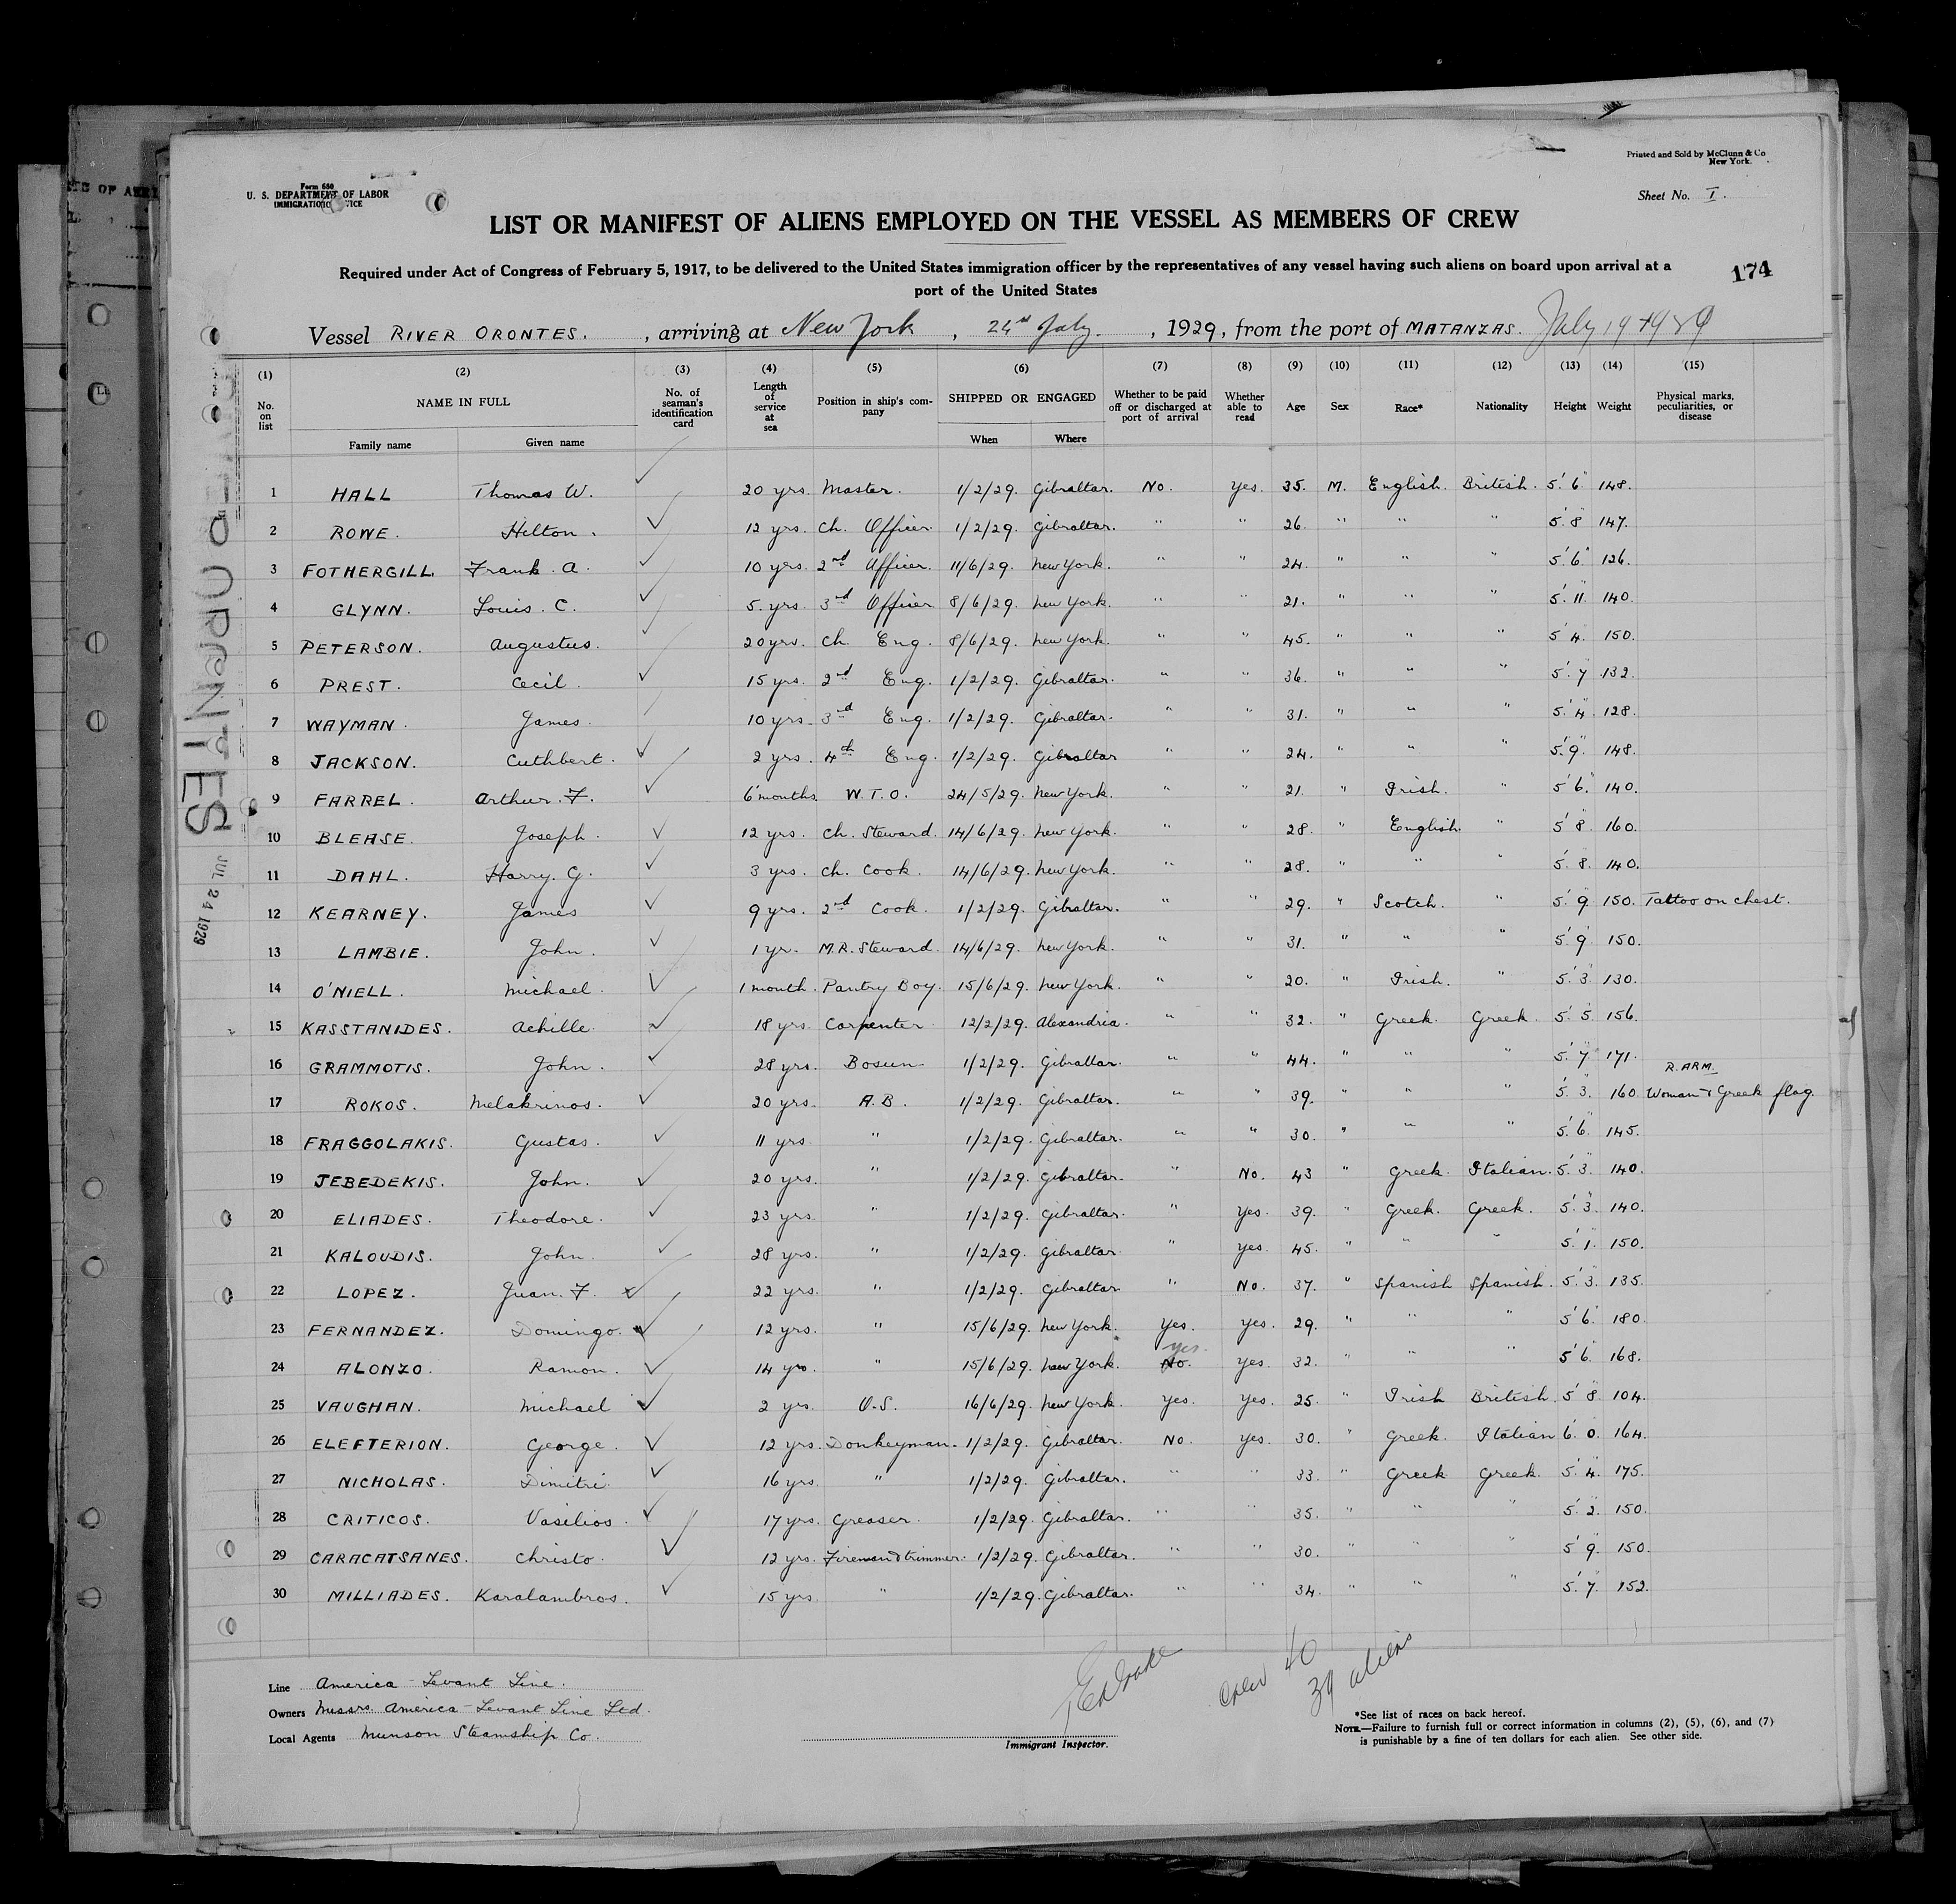 Printed and Sold by McClunn & Co
New York.
Form 680
U. S. DEPARTMENT OF LABOR
IMMIGRATION
Sheet No. I.
LIST OR MANIFEST OF ALIENS EMPLOYED ON THE VESSEL AS MEMBERS OF CREW
Required under Act of Congress of February 5, 1917, to be delivered to the United States immigration officer by the representatives of any vessel having such aliens on board upon arrival at a
port of the United States
174
Vessel RIVER ORONTES. , arriving at New York , 24th July. , 1929, from the port of MATANZAS. July 19 1929
(1) (2) (3) (4) (5) (6) (7) (8) (9) (10) (11) (12) (13) (14) (15)
No. on list NAME IN FULL Family name Given name No. of seaman's identification card Length of service at sea Position in ship's company SHIPPED OR ENGAGED When Where Whether to be paid off or discharged at port of arrival Whether able to read Age Sex Race* Nationality Height Weight Physical marks, peculiarities, or disease
1 HALL Thomas W. 20 yrs. Master. 1/2/29. Gibraltar. No. Yes. 35. M. English. British. 5' 6" 148.
2 ROWE. Hilton. 12 yrs. Ch. Officer. 1/2/29. Gibraltar. " " 26. " " " 5' 8" 147.
3 FOTHERGILL Frank. A. 10 yrs. 2nd Officer. 11/6/29. New York. " " 24. " " " 5' 6" 126.
4 GLYNN. Louis. C. 5 yrs. 3rd Officer 8/6/29. New York. " " 21. " " " 5' 11" 140.
5 PETERSON. Augustus. 20 yrs. Ch. Eng. 8/6/29. New York. " " 45. " " " 5' 4" 150.
6 PREST. Cecil. 15 yrs. 2nd Eng. 1/2/29. Gibraltar. " " 36. " " " 5' 7" 132.
7 WAYMAN. James. 10 yrs. 3rd Eng. 1/2/29. Gibraltar. " " 31. " " " 5' 4" 128.
8 JACKSON. Cuthbert. 2 yrs. 4th Eng. 1/2/29. Gibraltar " " 24. " " " 5' 9" 148.
9 FARREL. Arthur. F. 6 months. W.T.O. 24/5/29. New York. " " 21. " Irish. " 5' 6" 140.
10 BLEASE. Joseph. 12 yrs. Ch. Steward. 14/6/29. New York. " " 28. " English. " 5' 8" 160.
11 DAHL. Harry. G. 3 yrs. Ch. Cook. 14/6/29. New York. " " 28. " " " 5' 8" 140.
12 KEARNEY. James 9 yrs. 2nd Cook. 1/2/29. Gibraltar. " " 29. " Scotch. " 5' 9" 150. Tattoo on chest.
13 LAMBIE. John. 1 yr. M.R. Steward. 14/6/29. New York. " " 31. " " " 5' 9" 150.
14 O'NIELL. Michael. 1 month. Pantry Boy. 15/6/29. New York. " " 20. " Irish. " 5' 3" 130.
15 KASSTANIDES. Achille. 18 yrs. Carpenter. 12/2/29. Alexandria. " " 32. " Greek. Greek. 5' 5" 156.
16 GRAMMOTIS. John. 28 yrs. Bosun 1/2/29. Gibraltar. " " 44. " " " 5' 7" 171.
R. ARM.
17 ROKOS. Melakrinos. 20 yrs. A.B. 1/2/29. Gibraltar. " " 39. " " " 5' 3" 160. Woman & Greek flag.
18 FRAGGOLAKIS. Gustas. 11 yrs. " 1/2/29. Gibraltar. " " 30. " " " 5' 6" 145.
19 JEBEDEKIS. John. 20 yrs. " 1/2/29. Gibraltar. " No. 43 " Greek. Italian. 5' 3" 140.
20 ELIADES. Theodore. 23 yrs. " 1/2/29. Gibraltar. " Yes. 39. " Greek. Greek. 5' 3" 140.
21 KALOUDIS. John. 28 yrs. " 1/2/29. Gibraltar. " Yes. 45. " " " 5' 1" 150.
22 LOPEZ. Juan. F. 22 yrs. " 1/2/29. Gibraltar " No. 37. " Spanish Spanish. 5' 3" 135.
23 FERNANDEZ. Domingo. 12 yrs. " 15/6/29. New York. Yes. Yes. 29. " " " 5' 6" 180.
yes.
24 ALONZO. Ramon. 14 yrs. " 15/6/29. New York. No. Yes. 32. " " " 5' 6" 168.
25 VAUGHAN. Michael 2 yrs. O.S. 16/6/29. New York. Yes. Yes. 25. " Irish British. 5' 8" 104.
26 ELEFTERION. George. 12 yrs. Donkeyman. 1/2/29. Gibraltar. No. Yes. 30. " Greek. Italian 6' 0" 164.
27 NICHOLAS. Dimitri 16 yrs. " 1/2/29. Gibraltar. " " 33. " Greek Greek. 5' 4" 175.
28 CRITICOS. Vasilios. 17 yrs. Greaser. 1/2/29. Gibraltar. " " 35. " " " 5' 2" 150.
29 CARACATSANES. Christo. 12 yrs. Fireman & trimmer. 1/2/29. Gibraltar. " " 30. " " " 5' 9" 150.
30 MILLIADES. Karalambros. 15 yrs. " 1/2/29. Gibraltar. " " 34. " " " 5' 7" 152.
ORONTES
JUL 24 1929
Crew 40
39 aliens
Line America-Levant Line.
Owners Messrs. America-Levant Line Ltd.
Local Agents Munson Steamship Co.
Immigrant Inspector.
*See list of races on back hereof.
NOTE.—Failure to furnish full or correct information in columns (2), (5), (6), and (7)
is punishable by a fine of ten dollars for each alien. See other side.